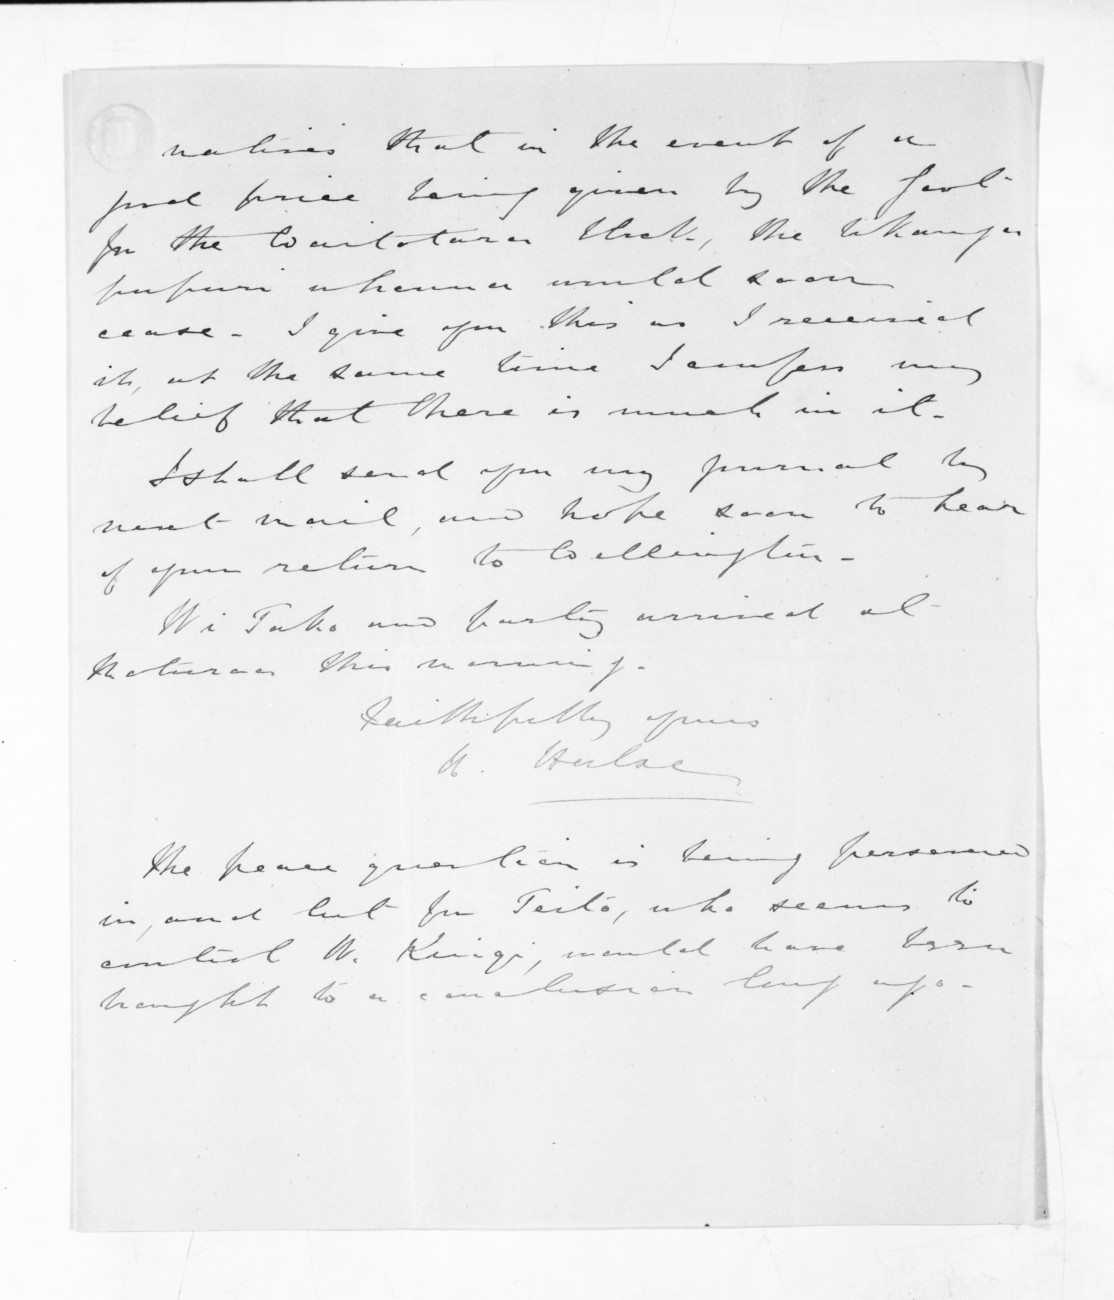 natives that in the event of a
good price being given by the Govt
for the Waitotara Block, the Whanga
pupuri whenua would soon
cease - I give you this as I received
it, at the same time I confess my
belief that there is much in it -
I shall send you my journal by
next mail, and hope soon to hear
of your return to Wellington -
Wi Tako and party arrived at
this morning -
Faithfully yours
Hulse
The peace question is being persevered
in, and but for Teito, who seems to
control W. Kingi, would have been
brought to a conclusion long ago -